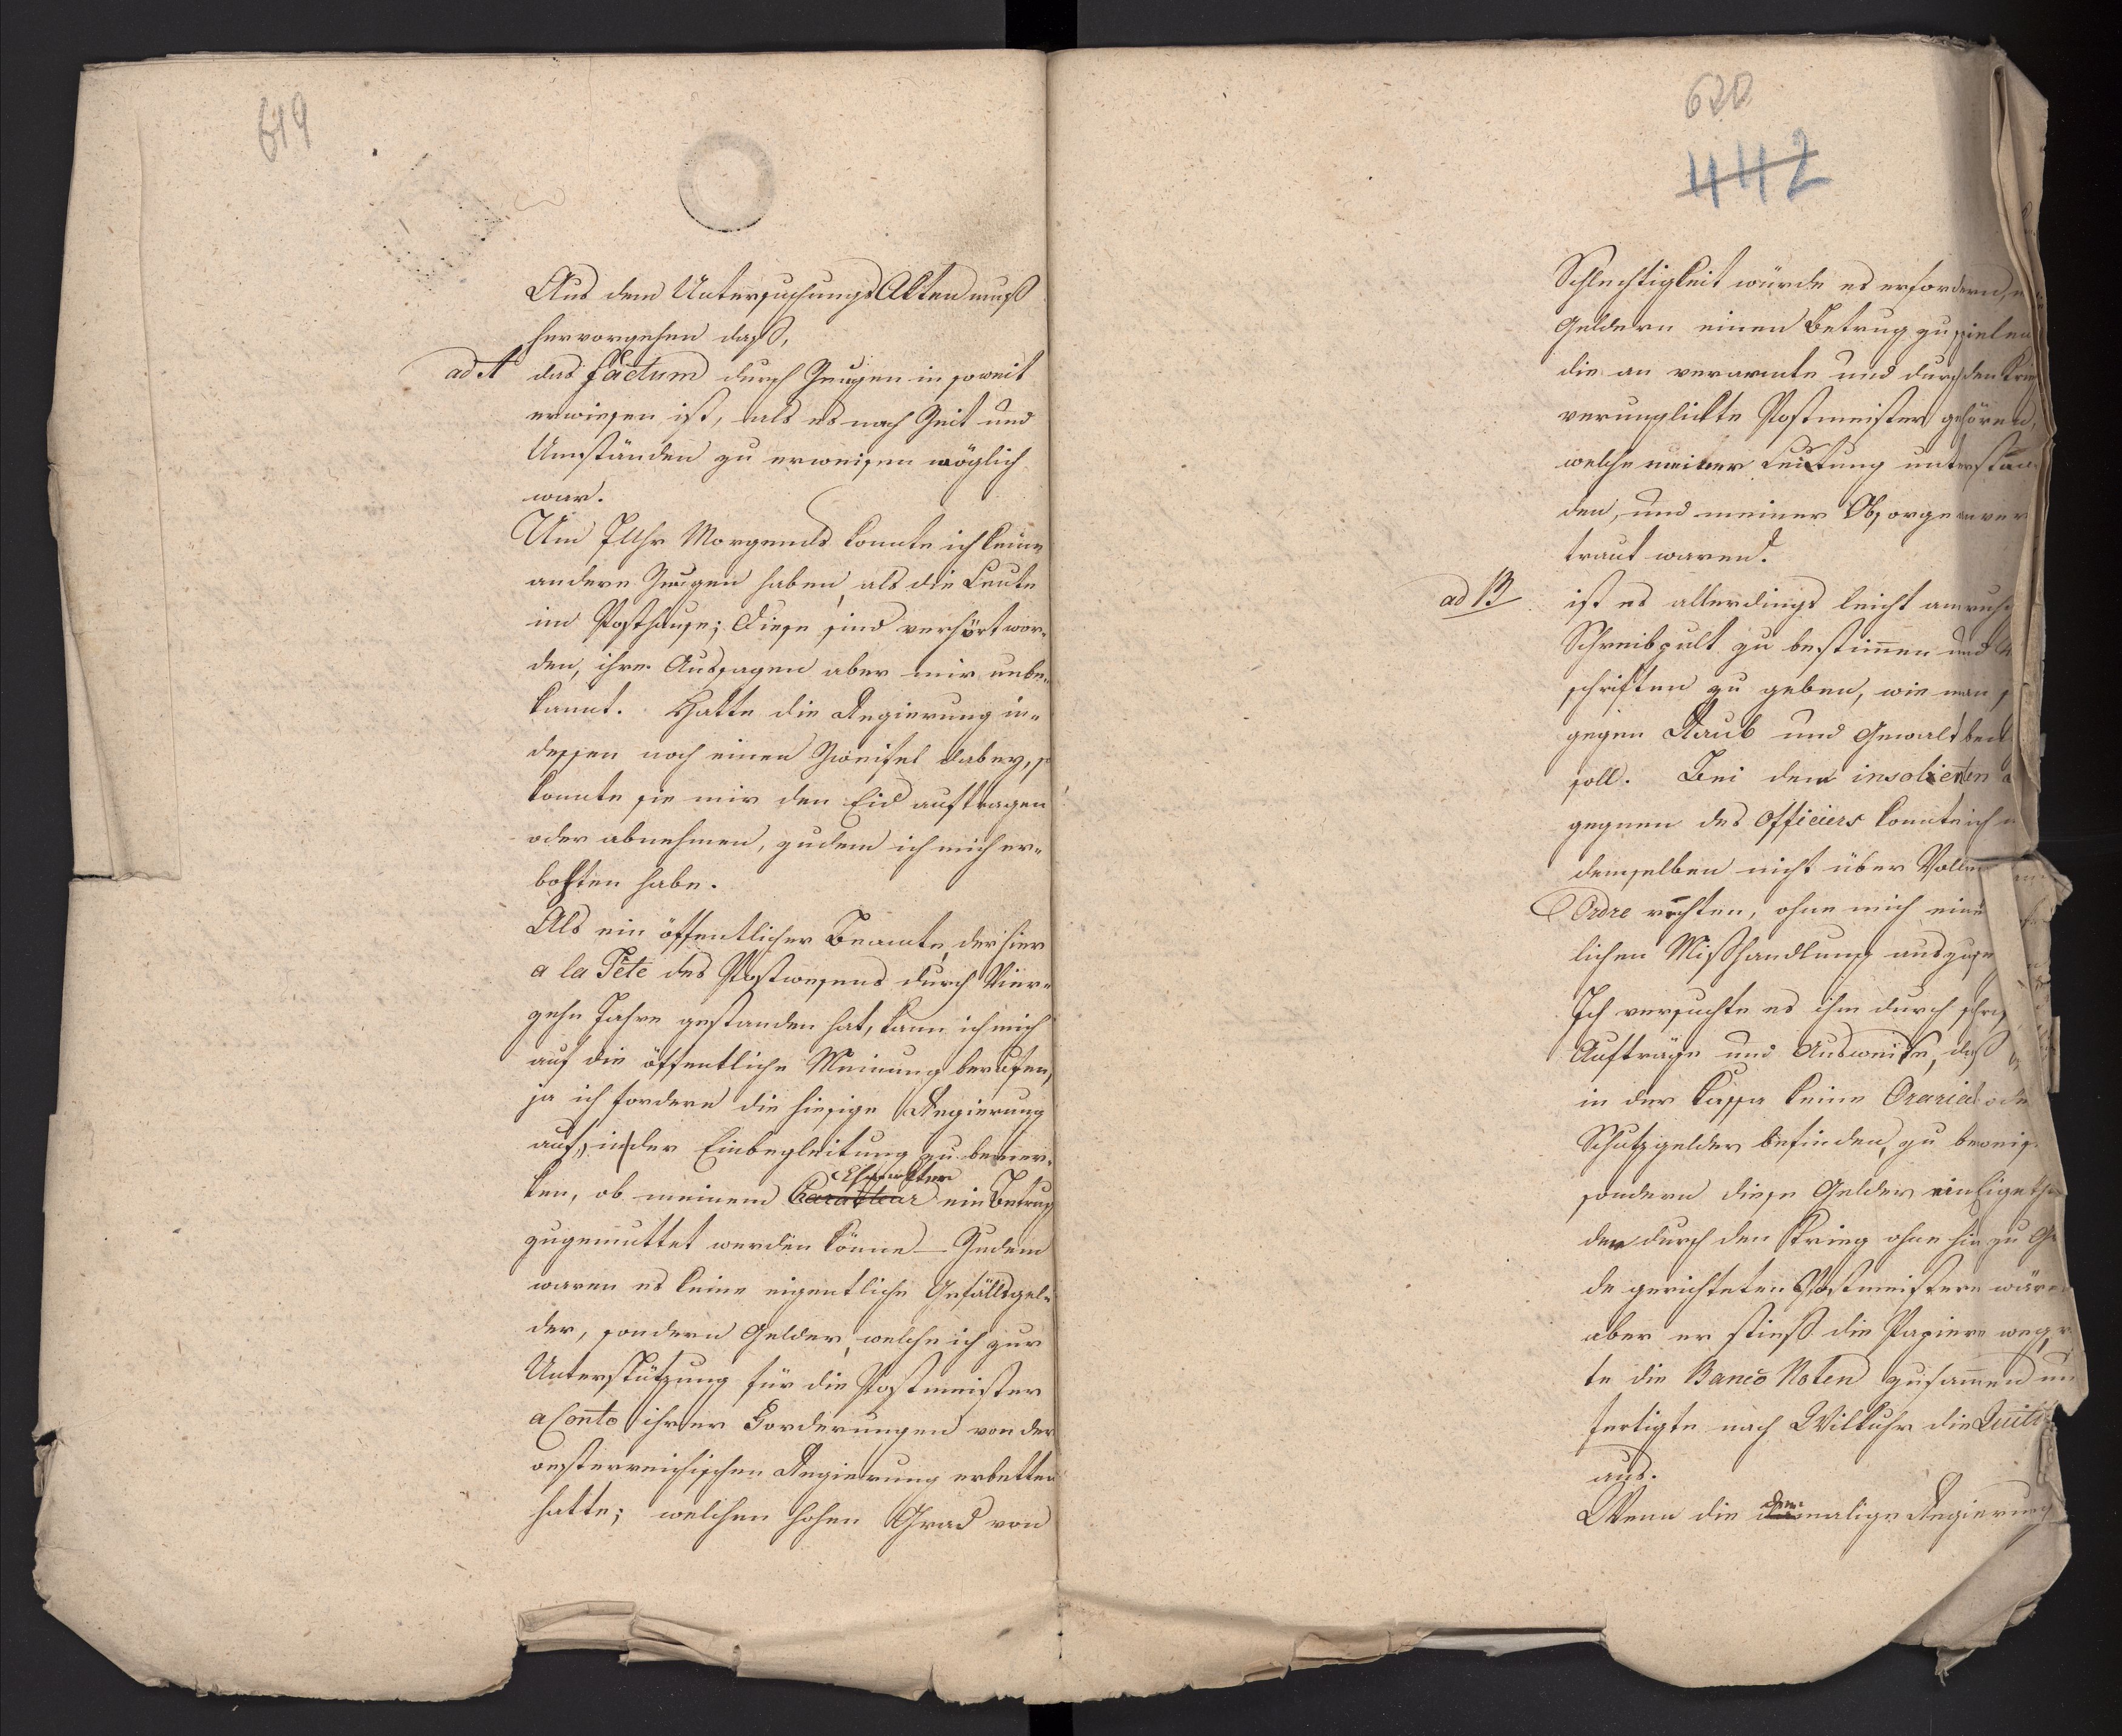 619
Aus dem UntersuchungsAkten muß
hervorgehen daß,
ad A das factum durch Zeugen in soweit
erwiesen ist, als es nach Zeit und
Umständen zu erweisen möglich
war.
Um 7 Uhr Morgends konnte ich keine
andere Zeugen haben, als die Leute
im Posthause; diese sind verhört wor„
den, ihre Aussagen aber mir unbe„
kannt. Hatte die Regierung in„
dessen noch einen Zweifel dabey, so
konnte sie mir den Eid auftragen
oder abnehmen, zudem ich mich er„
bothen habe.
Als ein öffentlicher Beamte, der hier
a la Tête des Postwesens durch Vier„
zehn Jahre gestanden hat, kann ich mich
auf die öffentliche Meinung berufen,
ja ich fordere die hiesige Regierung
auf, in der Einbegleitung zu bemer„
ken, ob meinem Charakter ein Betrug
zugemuttet werden könne – Zudem
waren es keine eigentliche Gefällsgel„
der, sondern Gelder, welche ich zur
Unterstützung für die Postmeister
a Conto ihrer Forderungen von der
oesterreichischen Regierung erbetten
hatte; welchen hohen Grad von
620
442
Schlechtigkeit würde es erfordern,
Geldern einen Betrug zu spielen
die an verarmte und durch den Krieg
verunglückte Postmeister gehören,
welche meiner Leitung unterstan„
den, und meiner Obsorge anver
traut waren.
ad B ist es allerdings leicht am ruh
Schreibpult zu bestimmen und
schriften zu geben, wie man
gegen Raub und Gewalt
soll. Bei dem insolenten
gegnen des Officiers konnte ich
demselben nicht über Vollm
Ordre rechten, ohne mich eine
lichen Mißhandlung auszuse
Ich versuchte es ihm durch
Aufträge und Ausweise, daß
in der Kassa keine Oraria oder
Schutzgelder befinden, zu beweis
sondern diese Gelder ein Eigenth
der durch den Krieg ohne hin zu
de gerichteten Postmeistern wären
aber er stieß die Papiere weg,
te die Banco Noten zusammen un
fertigte nach Wilkuhr die Quitt
aus.
Wenn die dermalige Regierung